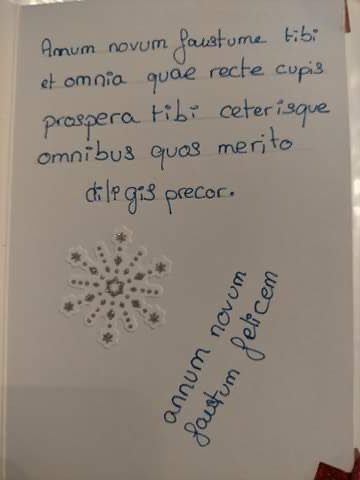 Annum novum faustume tibi
et omnia quae recte cupis
prospera tibi ceterisque
omnibus quos merito
diligis precor.
annum novum
faustum felicem